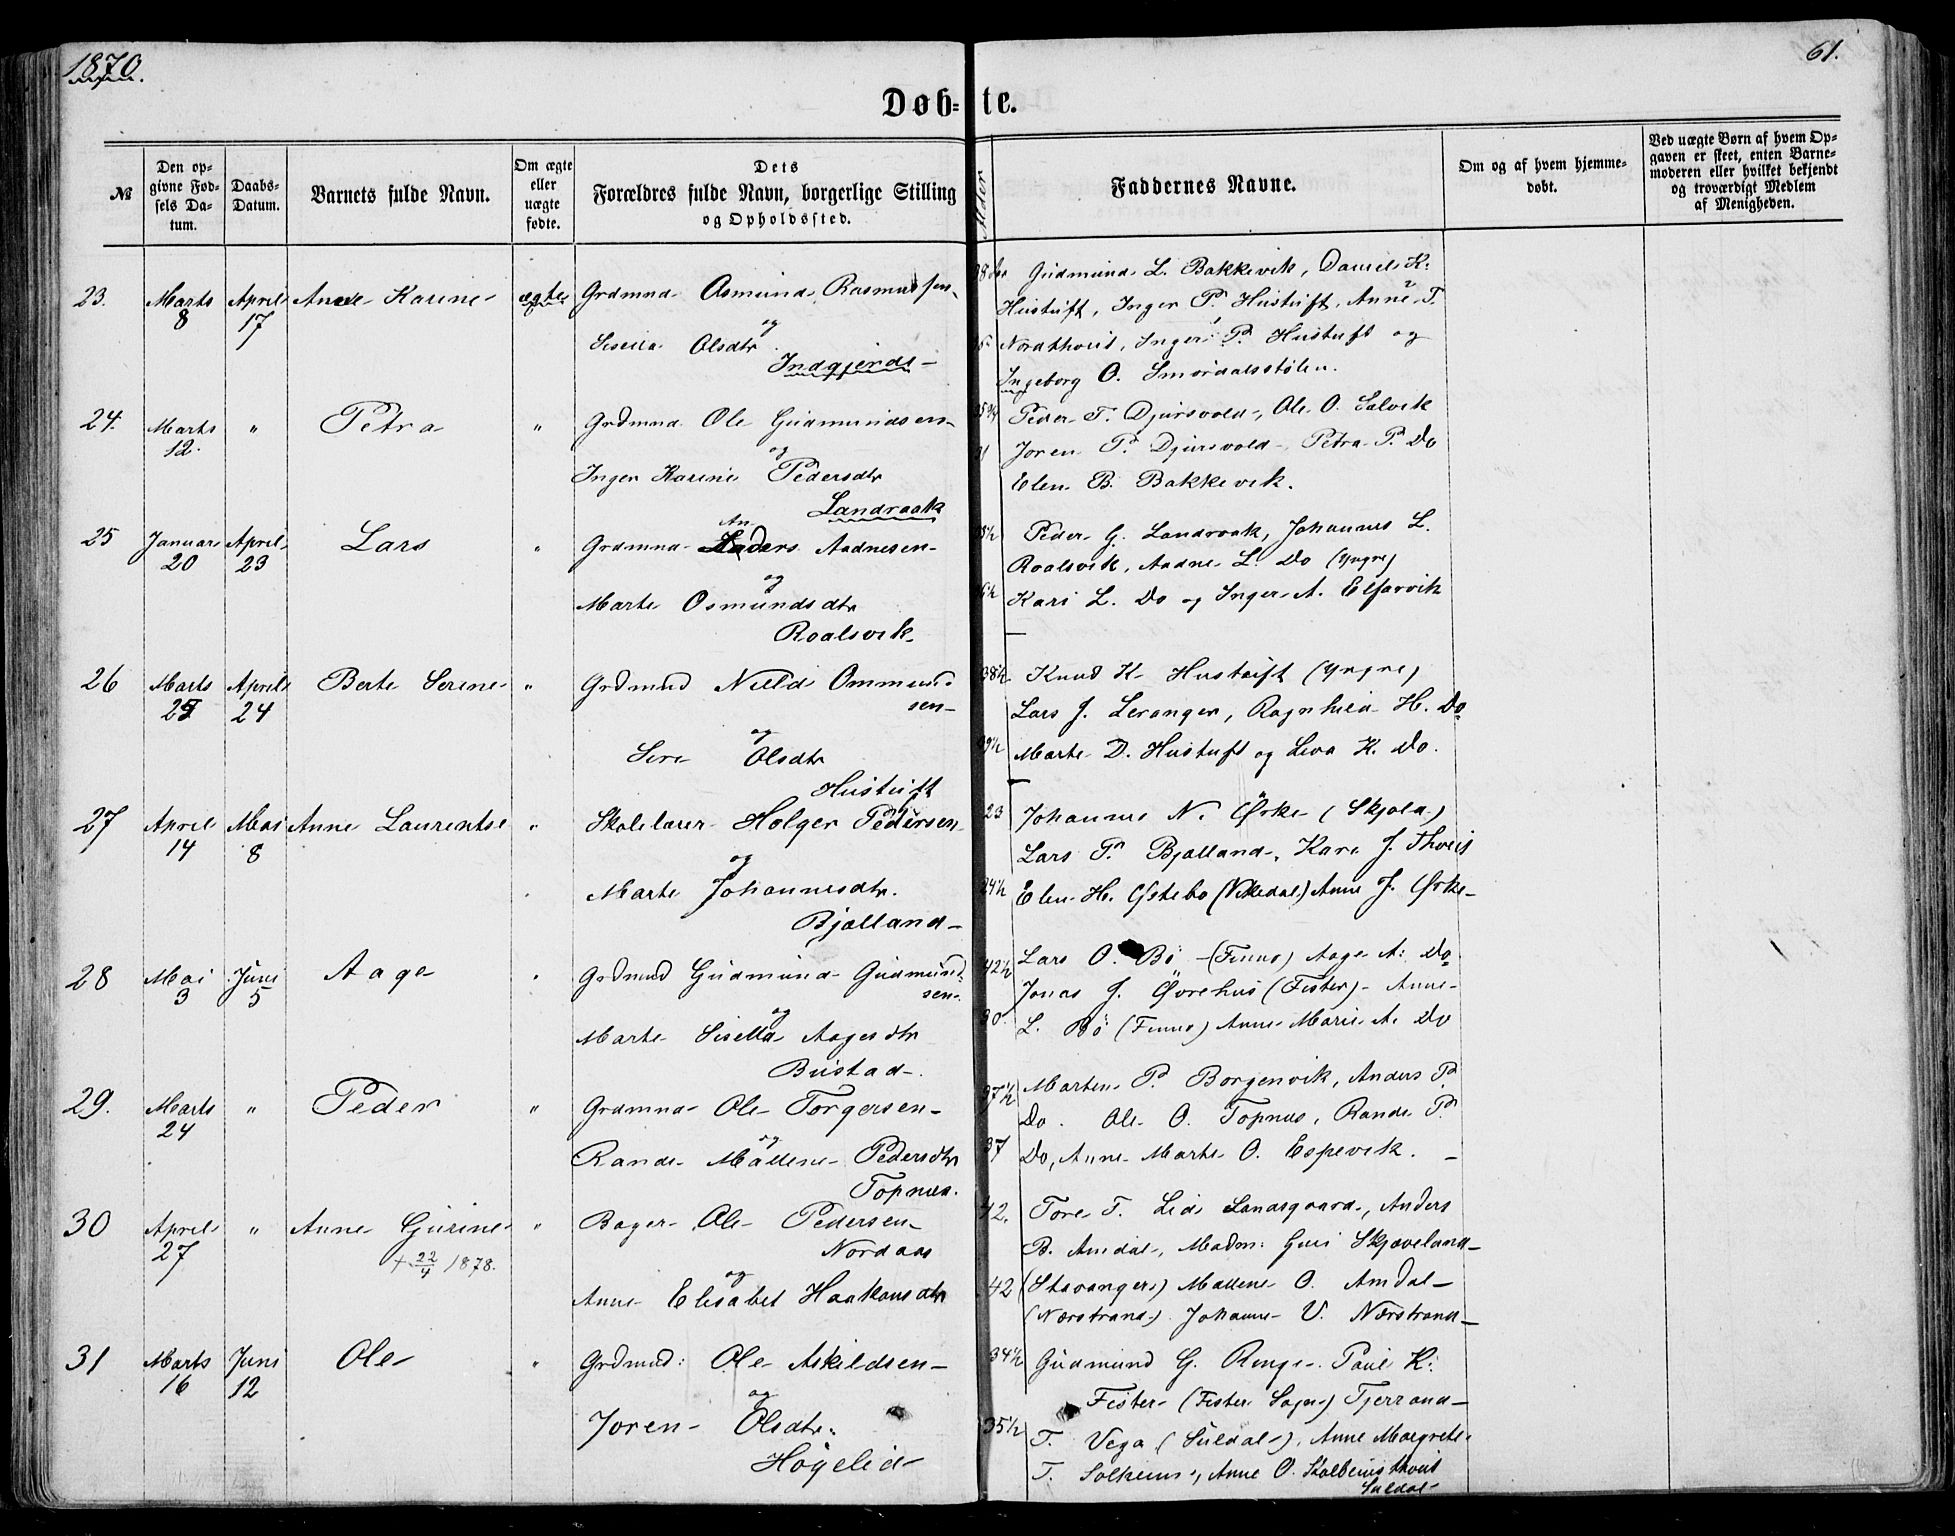 1870.
61.
Døb=te.
№
Den op-
givne Fød-
sels Da-
tum.
Daabs-
Datum.
Barnets fulde Navn.
Om ægte
eller
uægte
fødte.
Dets
Forældres fulde Navn, borgerlige Stilling
og Opholdssted.
Alder
Faddernes Navne.
Om og af hvem hjemme-
døbt.
Ved uægte Børn af hvem Op-
gaven er skeet, enten Barne-
moderen eller hvilket bekjendt
og troværdigt Medlem
af Menigheden.
23. Marts 8 April 17 Anne Karine ægte Grdmnd Osmund Rasmussen
og
Sisella Olsdtr
Indgjerde
Gudmund L. Bakkevik, Daniel K.
Hustuft, Inger P. Hustuft, Anne T.
Nordthveit, Inger P. Hustuft og
Ingeborg O. Smørdalsstølen.
24. Marts 12. " Petra " Grdmnd Ole Gudmundsen
og
Inger Karine Pedersdtr
Landraak
Peder T. Djursvold, Ole O. Eelvik
Joren P. Djursvold, Petra P. Do
Elen B. Bakkevik.
25 Januar 20 April 23 Lars " Grdmnd Anders Aadnesen
og
Marte Osmundsdtr
Roalsvik
Peder G. Landraak, Johannes L.
Roalsvik, Aadne L. Do (Yngre)
Kari L. Do og Inger A. Elfarvik
26 Marts 25 April 24 Berte Serine " Grdmnd Nills Ommund
sen
og
Sire Olsdtr
Hustuft
38½ Knud K. Hustuft (Yngre)
Lars J. Leranger, Ragnhild H. Do
Marte D. Hustuft og Liva K. Do.
27 April 14 Mai 8 Anne Laurentse " Skolelærer Holger Pedersen
og
Marte Johannesdtr.
Bjalland
23 Johannes N. Ørke (Skjold)
Lars P. Bjalland, Kari J. Thveit
24½ Elen H. Østebø (Vikedal) Anne J. Ørke
28 Mai 3 Juni 5 Aage " Grdmnd Gudmund Gudmund
sen
og
Marte Sisella Aagesdtr
Bustad.
42½ Lars O. Bø (Finnø) Aage A. Do
Jonas J. Øvrehus (Fister) Anne
30. L. Bø (Finnø) Anne Marie A. Do
29. Marts 24 " Peder " Grdmnd Ole Torgersen
og
Rande Mallene Pedersdtr
Topnæs.
37½ Marten P. Borgenvik, Anders P.
Do. Ole O. Topnæs, Rande P.
37 Do, Anne Marte O. Espevik.
30 April 27 " Anne Gurine " Bager Ole Pedersen
+ 22/4 1878.
Nordaas
og
Anne Elisabet Haakonsdtr
42. Tore T. Lid Landsgaard, Anders
B. Amdal, Madm: Guri Skjæveland
42 (Stavanger) Mallene O. Amdal
(Nærstrand) Johanne V. Nærstrand
31 Marts 16 Juni 12 Ole " Grdmnd: Ole Askildsen
og
Joren Olsdtr.
Høgelid
34½ Gudmund G. Ringe. Paul K.
Fister (Fister Sogn) Tjerrand
35½ T. Vega (Suldal), Anne Margrete
T. Solheim, Anne O. Kolbeinsthveit
Suldal